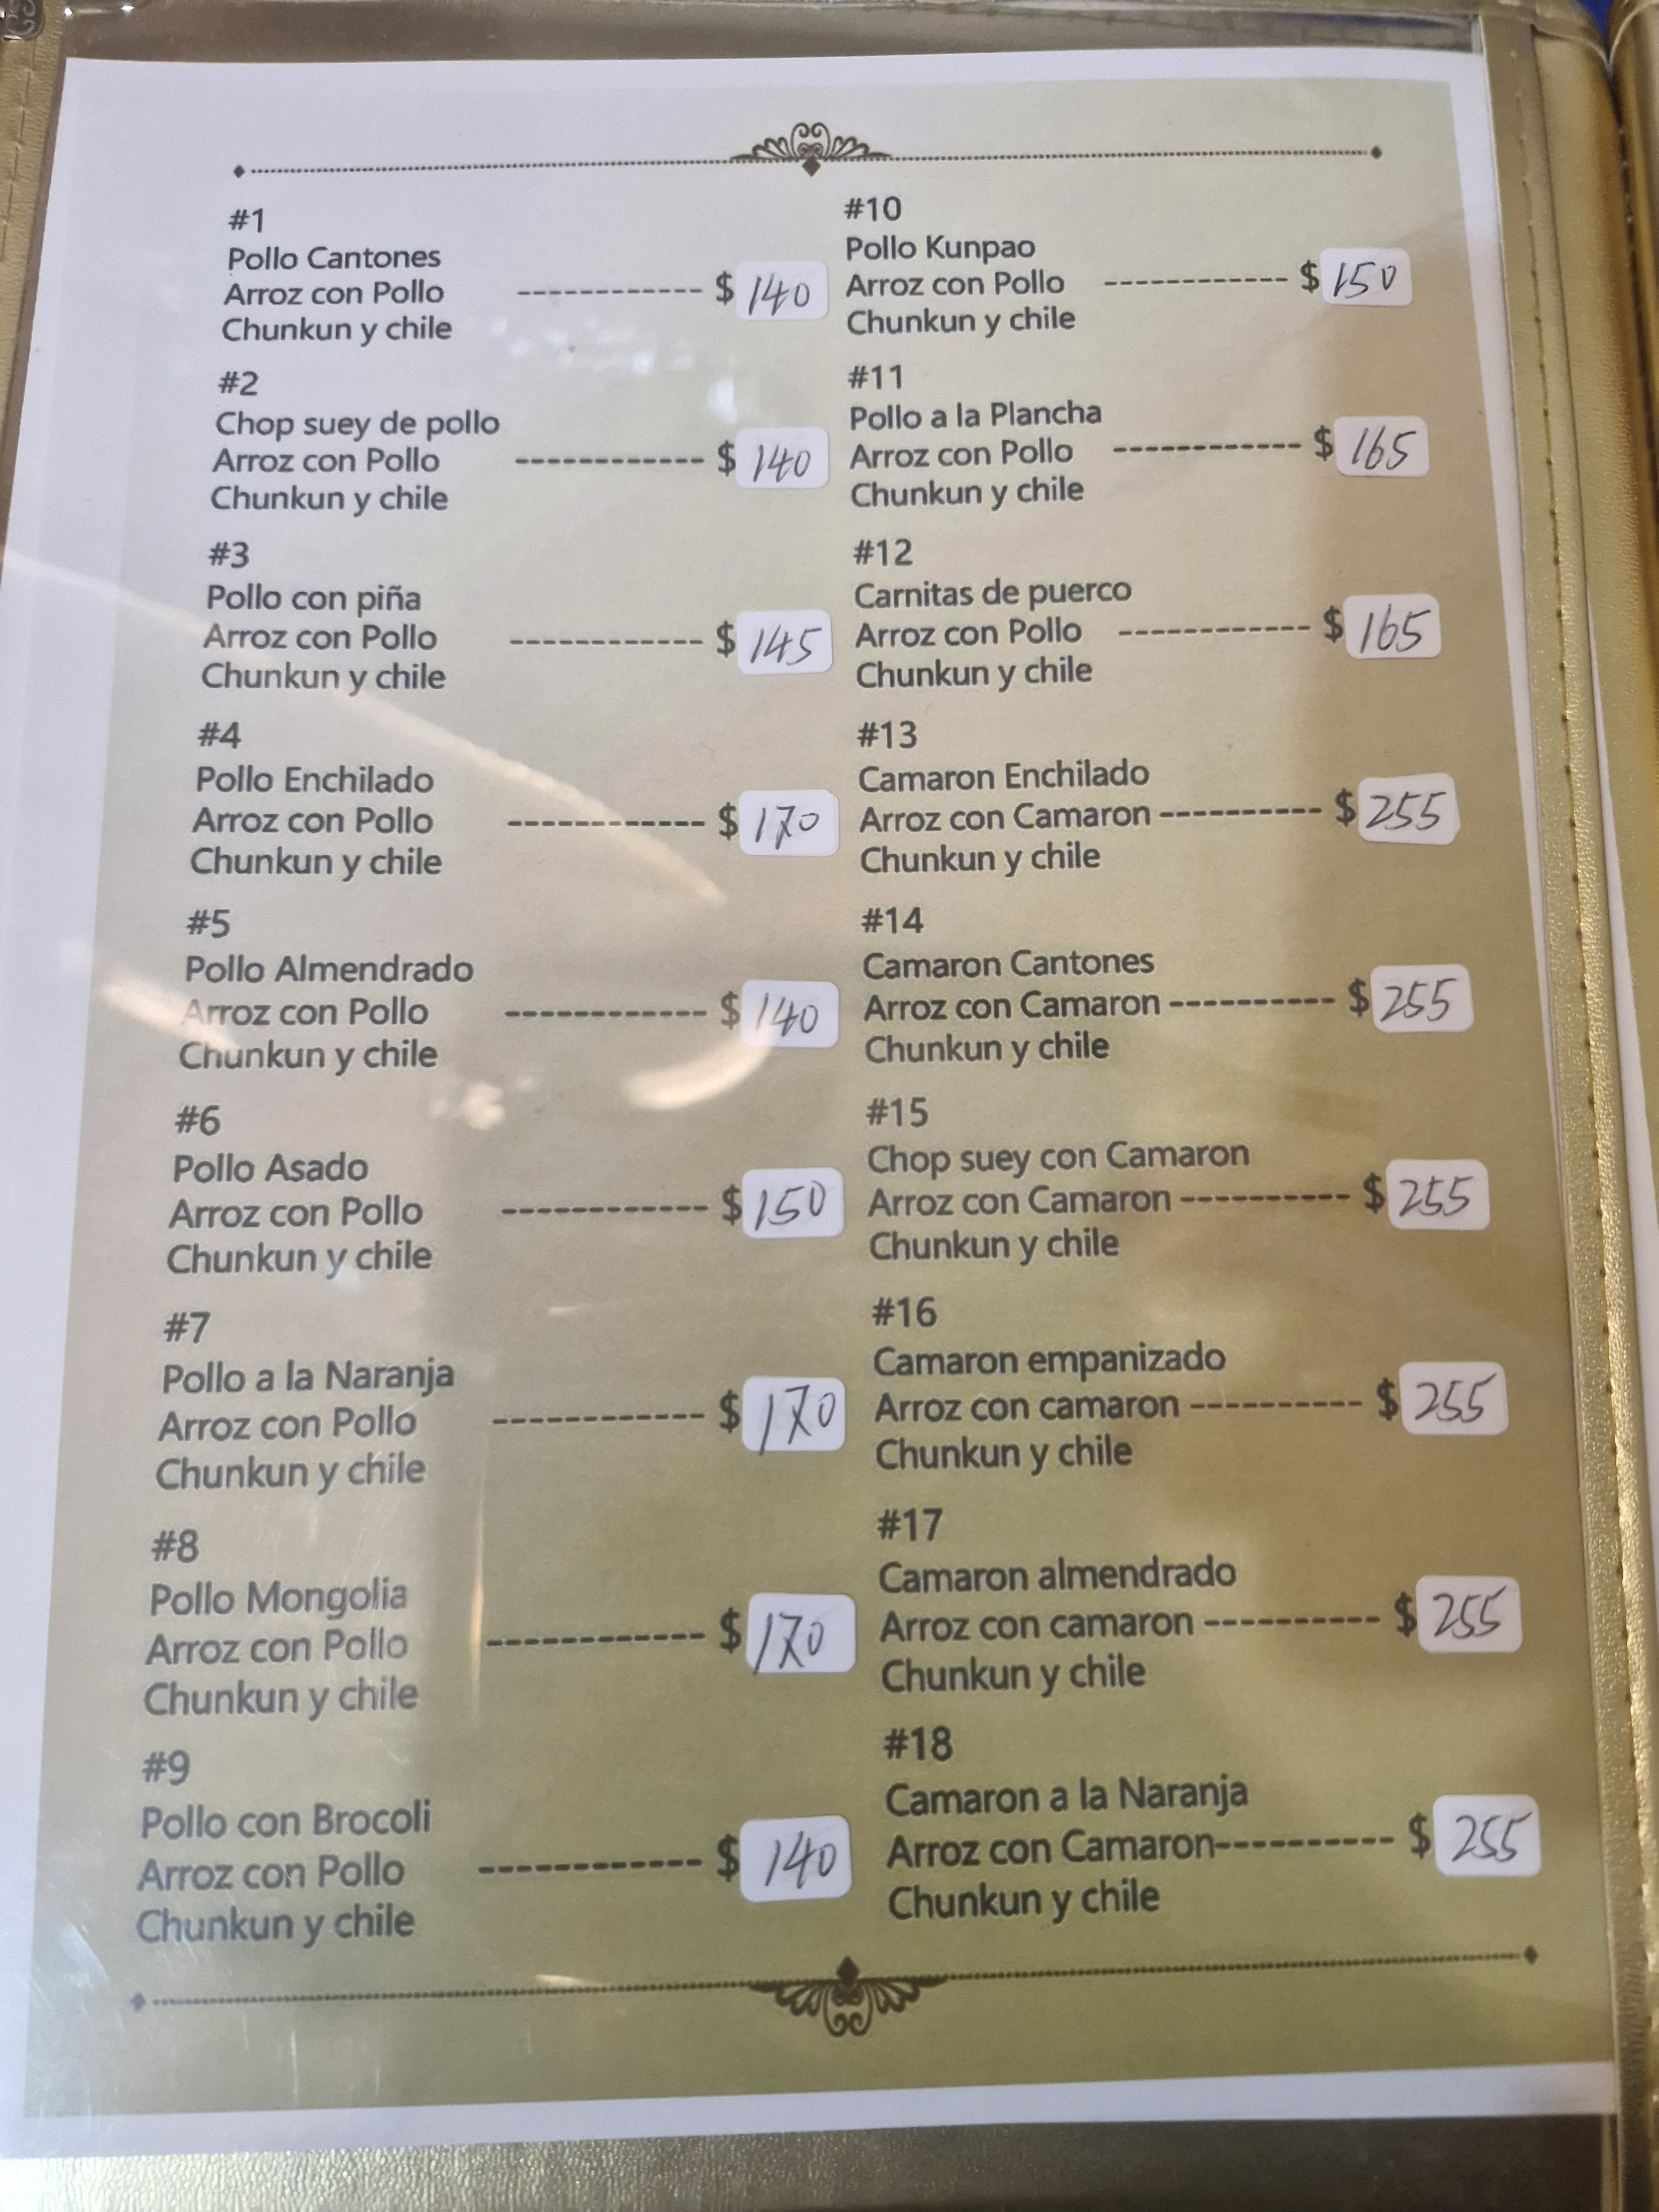 #1
Pollo Cantones
Arroz con Pollo ------------ $ 140
Chunkun y chile
#2
Chop suey de pollo
Arroz con Pollo ------------ $ 140
Chunkun y chile
#3
Pollo con piña
Arroz con Pollo ------------ $ 145
Chunkun y chile
#4
Pollo Enchilado
Arroz con Pollo ------------ $ 170
Chunkun y chile
#5
Pollo Almendrado
Arroz con Pollo ------------ $ 140
Chunkun y chile
#6
Pollo Asado
Arroz con Pollo ------------ $ 150
Chunkun y chile
#7
Pollo a la Naranja
Arroz con Pollo ------------ $ 170
Chunkun y chile
#8
Pollo Mongolia
Arroz con Pollo ------------ $ 170
Chunkun y chile
#9
Pollo con Brocoli
Arroz con Pollo ------------ $ 140
Chunkun y chile
#10
Pollo Kunpao
Arroz con Pollo ------------ $ 150
Chunkun y chile
#11
Pollo a la Plancha
Arroz con Pollo ------------ $ 165
Chunkun y chile
#12
Carnitas de puerco
Arroz con Pollo ------------ $ 165
Chunkun y chile
#13
Camaron Enchilado
Arroz con Camaron ---------- $ 255
Chunkun y chile
#14
Camaron Cantones
Arroz con Camaron ---------- $ 255
Chunkun y chile
#15
Chop suey con Camaron
Arroz con Camaron ---------- $ 255
Chunkun y chile
#16
Camaron empanizado
Arroz con camaron ---------- $ 255
Chunkun y chile
#17
Camaron almendrado
Arroz con camaron ---------- $ 255
Chunkun y chile
#18
Camaron a la Naranja
Arroz con Camaron---------- $ 255
Chunkun y chile